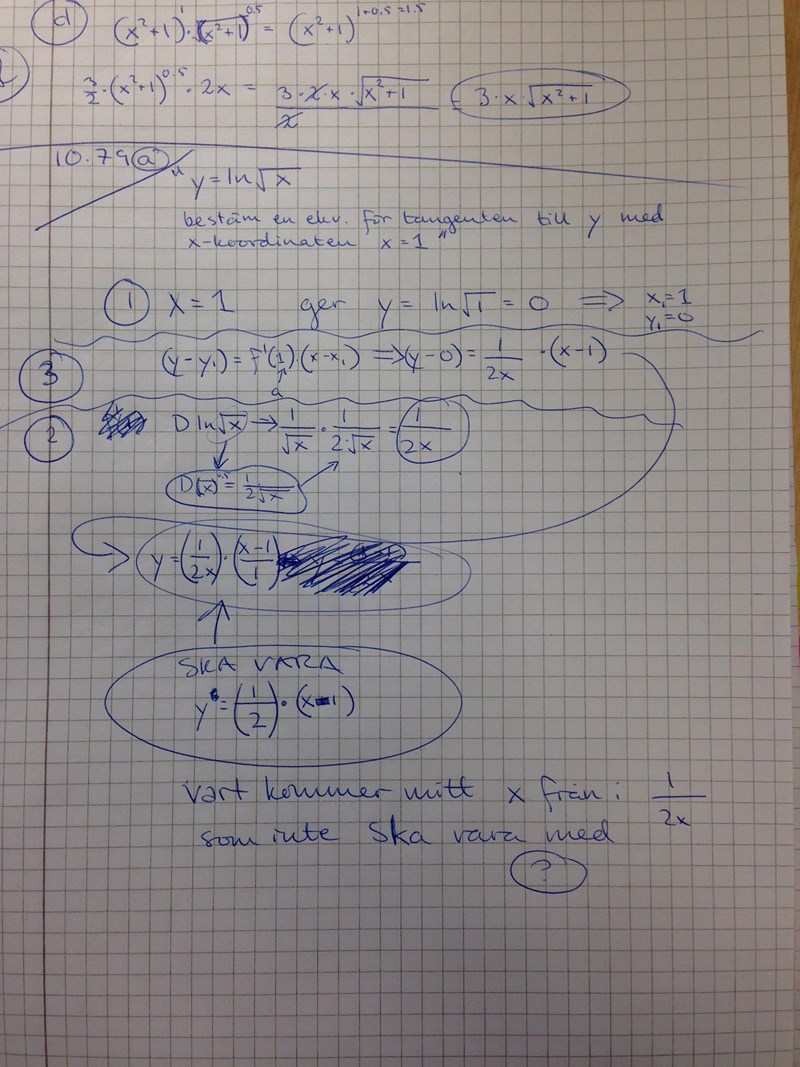 d) (x²+1)¹·(√x²+1)^0.5 = (x²+1)^1+0.5=1.5
3/2 · (x²+1)^0.5 · 2x = 3·2·x·√x²+1 / 2 = 3·x·√x²+1
10.79 a) " y = ln√x
bestäm en ekv. för tangenten till y med
x-koordinaten x=1 "
① x=1 ger y = ln√1 = 0 ⇒ x₁=1
y₁=0
③ (y-y₁) = f'(1)·(x-x₁) ⇒ (y-0) = 1/2x · (x-1)
a
② D ln√x → 1/√x · 1/2·√x = 1/2x
D(x)^0.5 = 1/2√x
y = (1/2x) · (x-1/1)
SKA VARA
y = (1/2) · (x-1)
vart kommer mitt x från i 1/2x
som inte ska vara med
?